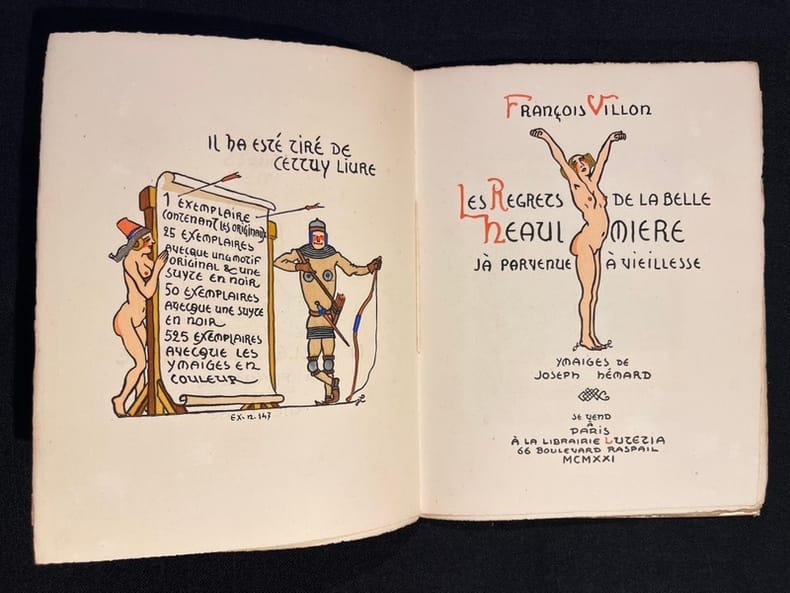 Il ha esté tiré de
cettuy liure
1 exemplaire
contenant les originaux
25 exemplaires
avecque un motif
original & une
suyte en noir
50 exemplaires
avecque une suyte
en noir
525 exemplaires
avecque les
ymaiges en
couleur
EX. n. 147
François Villon
Les Regrets de la belle
Heaulmiere
jà parvenue à vieillesse
ymaiges de
Joseph Hémard
se vend
à
Paris
à la librairie Lutetia
66 boulevard Raspail
MCMXXI